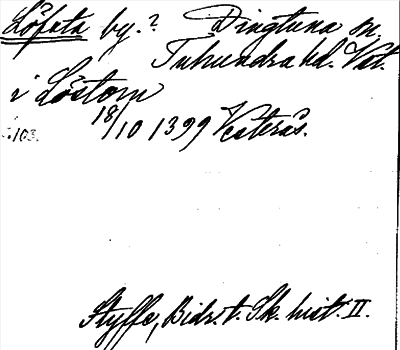 Löfsta by.? Dingtuna sn.
Tuhundra hd. Vst.
i Löstom
18/10 1399 Vesterås.
s. 103.
Styffe, Bidr. t. Sk. hist. II.